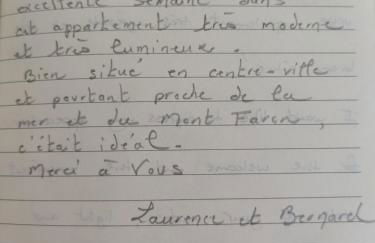 excellente semaine dans
cet appartement très moderne
et très lumineux.
Bien situé en centre-ville
et pourtant proche de la
mer et du Mont Faron,
c'était idéal.
Merci à Vous
Laurence et Bernard